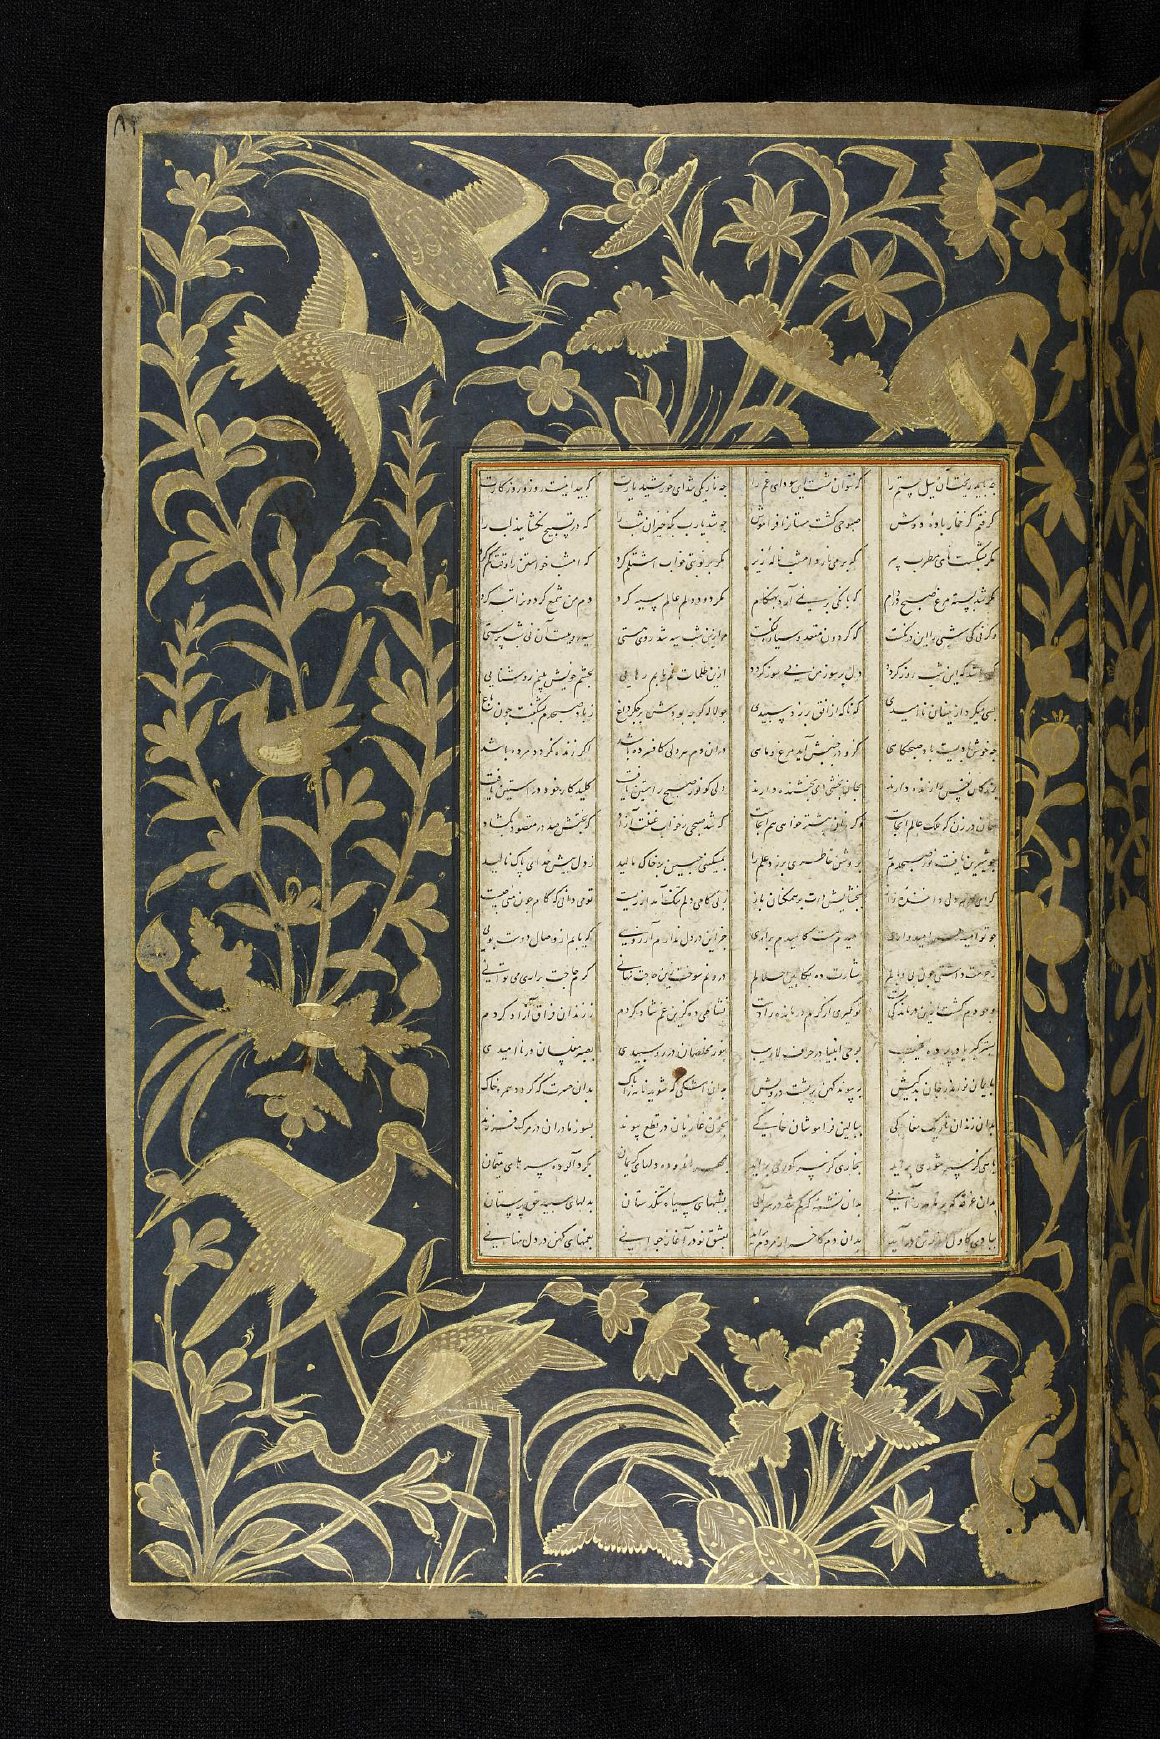 که نتوان شستن سودای غم را چه تاریکی شد ای خورشید بازت
گرفتم کز خمار باده دوش صبوحی گشت مستان را فراموش چه شد یارب که خیزان شب را که در تسبیح نگشایند لب را
مگر بشکست نای مطرب پیر که برمی نارد امشب ناله زیر مگر بر نوبتی خواب اشتلم کرد که امشب خواستن را وقت گم کرد
مگر شد بسته مرغ صبح در دام که بانگی بر نمی آرد بهنگام مگر دود دلم عالم سیه کرد دم من شمع گردون را تبه کرد
وگر نی کی شبی را این درنگست که گردون هوا زین شب سیه شد روی هستی
که باشد که این شب روز گردد دل پر سوز من بی سوز گردد ازین ظلمات غم یابم رهایی بچشم خویش بینم روشنایی
بسی میکرد ازینسان ناامیدی که ناگه از افق بر زد سپیدی چو لاله گرچه بودش بر جگر داغ ز باد صبحدم بشکفت چون باغ
چه خوش بادیست باد صبحگاهی کزو در جنبش آید مرغ و ماهی دران دم هر دلی کافسرده باشد اگر زنده نگردد مرده باشد
دلی کو نور صبح راستین یافت کلید کار خود در آستین یافت
در زن که ملک عالم آنجاست خواهی هم آنجاست که شد صبحی ز خواب غفلت آزاد که بختش صد در مقصود نگشاد
چو شیرین یافت نور صبحدم را بروشن خاطری بر زد علم را بمسکینی جبین بر خاک مالید ز دل پیش خدای پاک نالید
که ای در هر دلی داننده راز ببخشایش درت بر همگنان باز ز بی کامی دلم تنگ آمد از زیست تو می دانی که کام چون منی چیست
چو تو امید هر امیدواری امیدم هست کامیدم براری جز این در دل ندارم آرزویی که یابم از وصال دوست بویی
بشارت ده درونم سوخت این حاجت نهانی گر حاجت براری می توانی
وجودم گشت ازین درماندگی پست تو گیری درمانده را دست نشاطی ده کزین غم شاد گردم ز زندان فراق آزاد گردم
کبریا در پرده غیب بوحی انبیا در حرف لاریب بنور مخلصان در روسپیدی بصبر مفلسان در ناامیدی
بدکیش درویش بدان اشکی که شوید نامه را پاک بدان حسرت که گردد همره خاک
بدان زندان تاریک مغاکی ببالین فراموشان خاکی بخون غازیان در قطع پیوند بسوز مادران در مرگ فرزند
باهی کز سر شوری برآید بخاری کز سر گوری برآید بمهر اندوده دلهای کریمان بگرد آلوده سرهای یتیمان
بدان غرقه که بدان تشنه که بشبهای سیاه تنگدستان بدلهای سپید حق پرستان
ببادی کاول بدان دم کاخر از مردم برآید بعشق نو در آغاز جوانی بغمهای کهن در دل نهانی